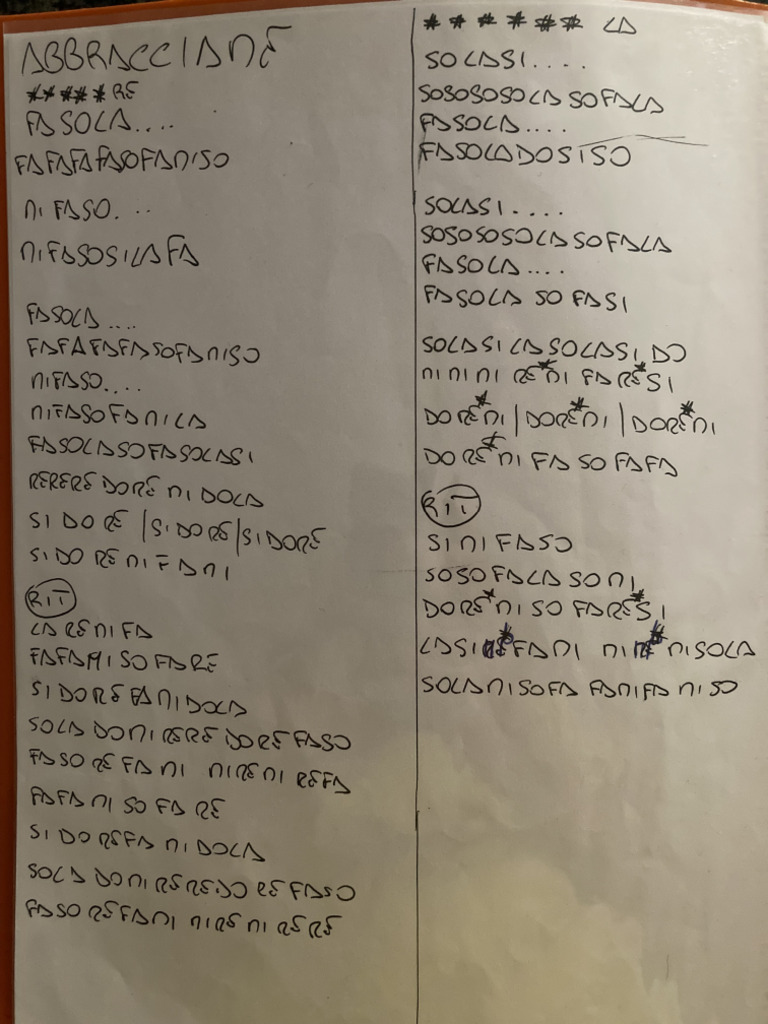 ABBRACCIAME
****RE
FASOLA....
FAFAFAFASOFAMISO
MIFASO...
MIFASOSILAFA
FASOLA....
FAFAFAFASOFAMISO
MIFASO....
MIFASOFAMILA
FASOLASOFASOLASI
RERERE DORE MI DOLA
SI DO RE |SIDORE|SIDORE
SI DO RE MI FA MI
RIT
LA RE MI FA
FAFAMISOFARE
SI DO RE FA MI DOLA
SOLA DO MI RERE DORE FASO
FASO RE FA MI MIREMI REFA
FAFA MI SO FA RE
SI DO REFA MI DOLA
SOLA DOMIRERE DO RE FASO
FASO REFAMI MIREMI RERE
****** LA
SOLASI....
SOSOSOSOLA SOFALA
FASOLA....
FASOLADOSISO
SOLASI....
SOSOSOSOLASOFALA
FASOLA....
FASOLA SO FASI
SOLASI LASOLASI DO
MI MI MI RE*MI FA RE*SI
DO RE*MI | DORE*MI | DORE*MI
DO RE*MI FA SO FAFA
RIT
SIMIFASO
SOSOFALASOMI
DORE*MI SO FARE*SI
LASIRE*FAMI MIRE*MISOLA
SOLAMISOFA FAMIFA MISO